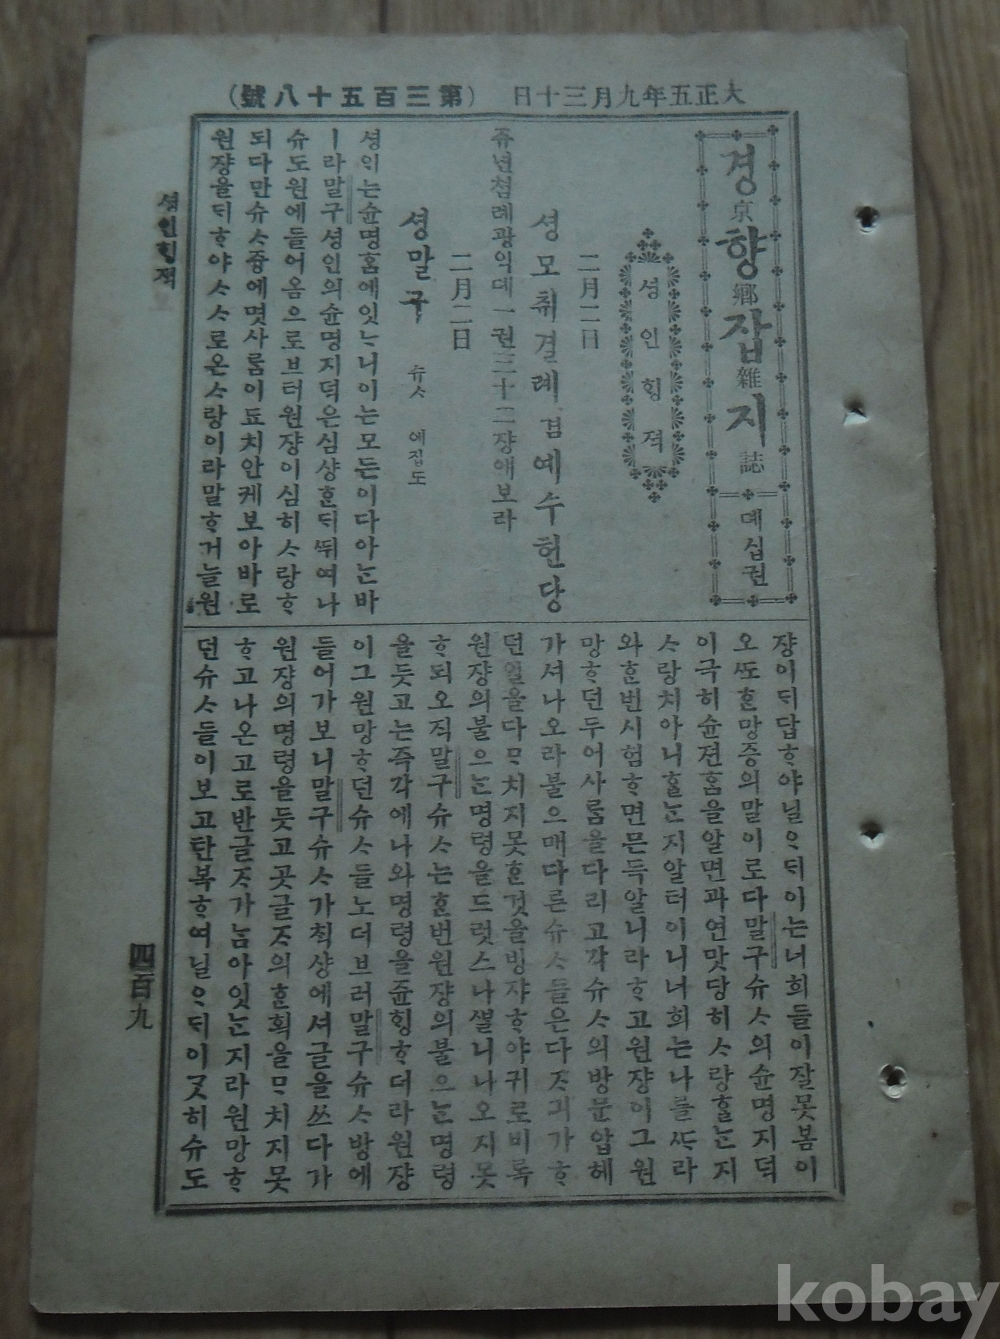 大正五年九月三十日
(第三百五十八號)
경京향鄕잡雜지誌 뎨십권
셩인ᄒᆡᆼ젹
二月二日
셩모취결례겸예수헌당
쥬년쳠례광익뎨一권三十二쟝애보라
二月二日
셩말구 슈ᄉᆞ 에집도
셩인은슌명홈에잇ᄂᆞ니이ᄂᆞᆫ모든이다아ᄂᆞᆫ바
ㅣ라말구셩인의슌명지덕은심샹ᄒᆞᆫᄃᆡ ᄯᅱ여나
슈도원에들어옴으로브터원쟝이심히ᄉᆞ랑ᄒᆞ
되다만슈ᄉᆞ즁에몃사ᄅᆞᆷ이됴치안케보아바로
원쟝을ᄃᆡᄒᆞ야ᄉᆞᄉᆞ로온ᄉᆞ랑이라말ᄒᆞ거늘원
쟝이ᄃᆡ답ᄒᆞ야닐ᄋᆞᄃᆡ이ᄂᆞᆫ너희들이잘못봄이
오ᄯᅩᄒᆞᆫ망증의말이로다말구슈ᄉᆞ의슌명지덕
이극히슌젼홈을알면과연맛당히ᄉᆞ랑ᄒᆞᆯᄂᆞᆫ지
ᄉᆞ랑치아니ᄒᆞᆯᄂᆞᆫ지알터이니너희ᄂᆞᆫ나를ᄯᆞ라
와ᄒᆞᆫ번시험ᄒᆞ면믄득알니라ᄒᆞ고원쟝이그원
망ᄒᆞ던두어사ᄅᆞᆷ을다리고각슈ᄉᆞ의방문압헤
가셔나오라불으매다른슈ᄉᆞ들은다ᄌᆞ긔가ᄒᆞ
던일을다ᄆᆞ치지못ᄒᆞᆫ것을빙쟈ᄒᆞ야귀로비록
원쟝의불으ᄂᆞᆫ명령을드럿스나ᄲᆞᆯ니나오지못
ᄒᆞ되오직말구슈ᄉᆞᄂᆞᆫᄒᆞᆫ번원쟝의불으ᄂᆞᆫ명령
을듯고ᄂᆞᆫ즉각에나와명령을쥰ᄒᆡᆼᄒᆞ더라원쟝
이그원망ᄒᆞ던슈ᄉᆞ들노더브러말구슈ᄉᆞ방에
들어가보니말구슈ᄉᆞ가ᄎᆡᆨ샹에셔글을쓰다가
원쟝의명령을듯고곳글ᄌᆞ의ᄒᆞᆫ획을ᄆᆞ치지못
ᄒᆞ고나온고로반글ᄌᆞ가놈아잇ᄂᆞᆫ지라원망ᄒᆞ
던슈ᄉᆞ들이보고탄복ᄒᆞ여닐ᄋᆞᄃᆡ이ᄀᆞᆺ히슈도
셩인ᄒᆡᆼ젹
四百九
kobay